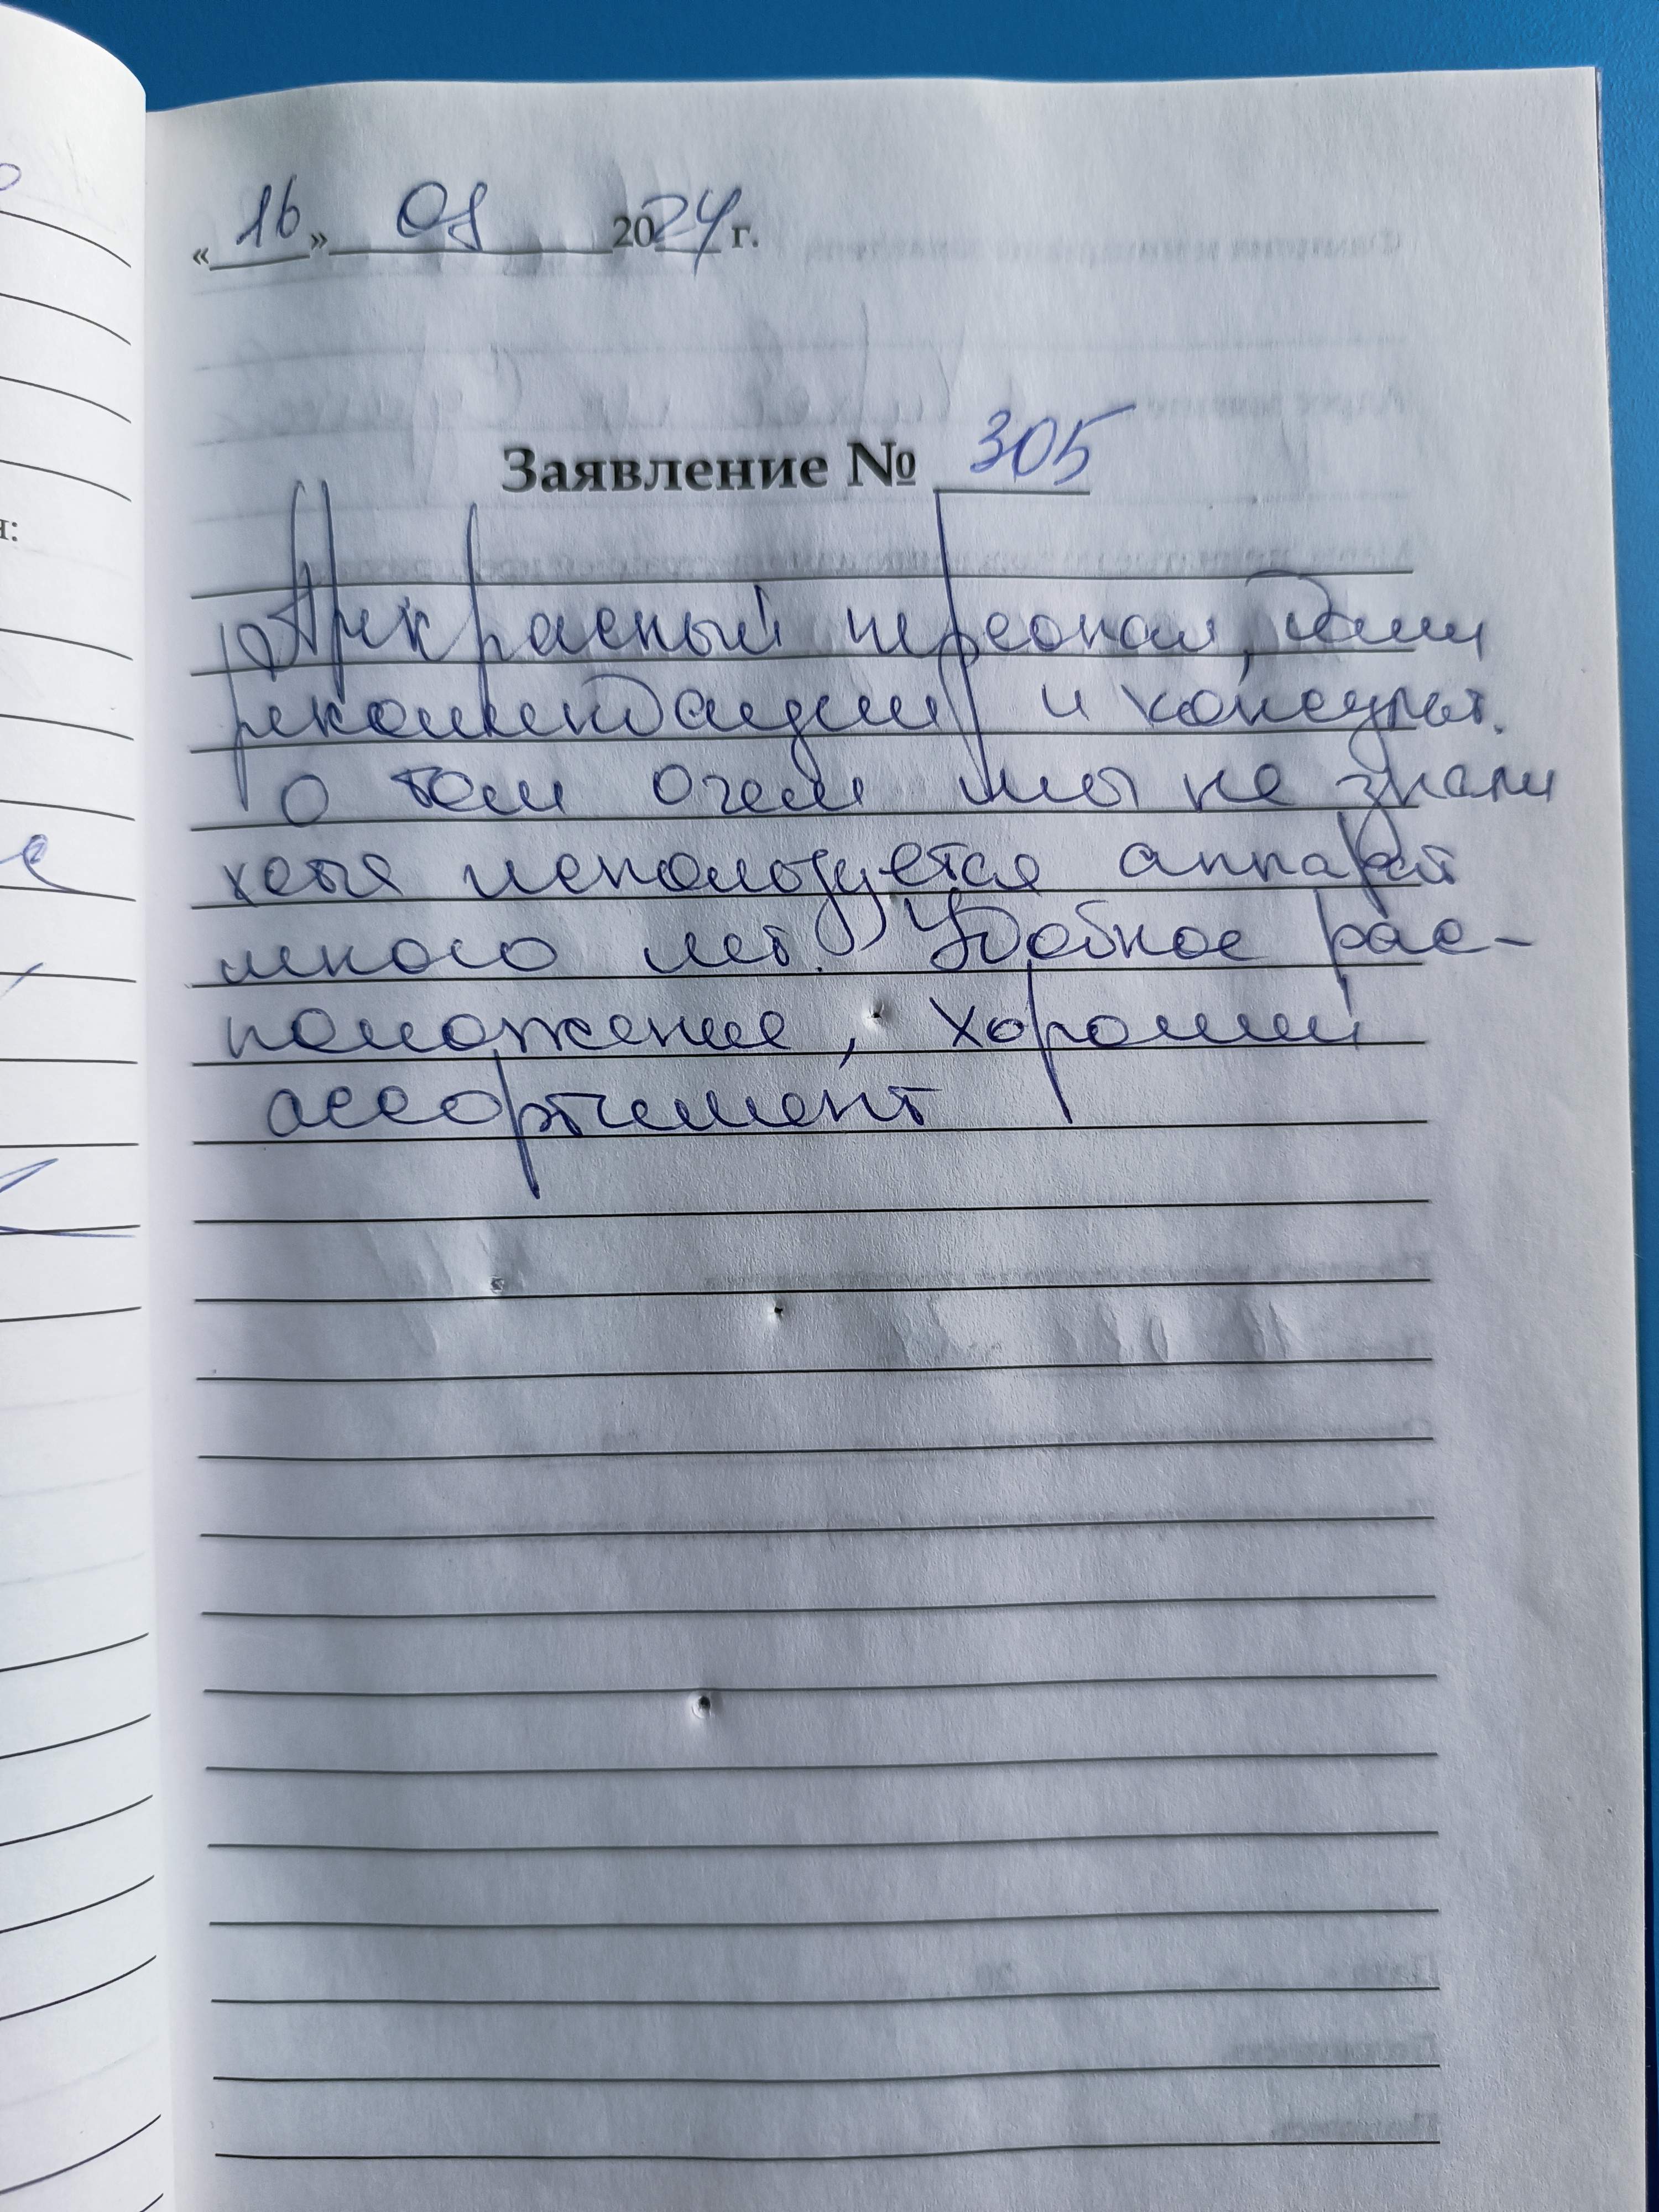 «16» 08 2024 г.
Заявление № 305
Прекрасный персонал, дали
рекомендации и консульт.
о том о чем мы не знали
хотя используется аппарат
много лет. Удобное рас-
положение, хороший
ассортимент